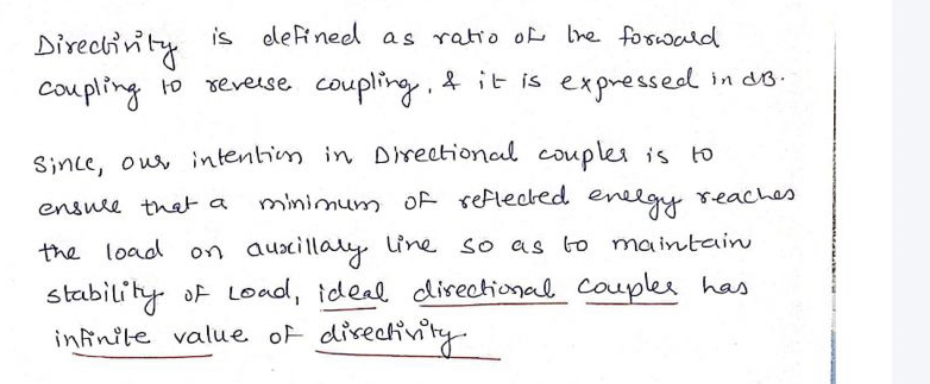 Directivity is defined as ratio of the forward
coupling to reverse coupling, & it is expressed in dB.
Since, our intention in Directional coupler is to
ensure that a minimum of reflected energy reaches
the load on auxillary line so as to maintain
stability of Load, ideal directional coupler has
infinite value of directivity